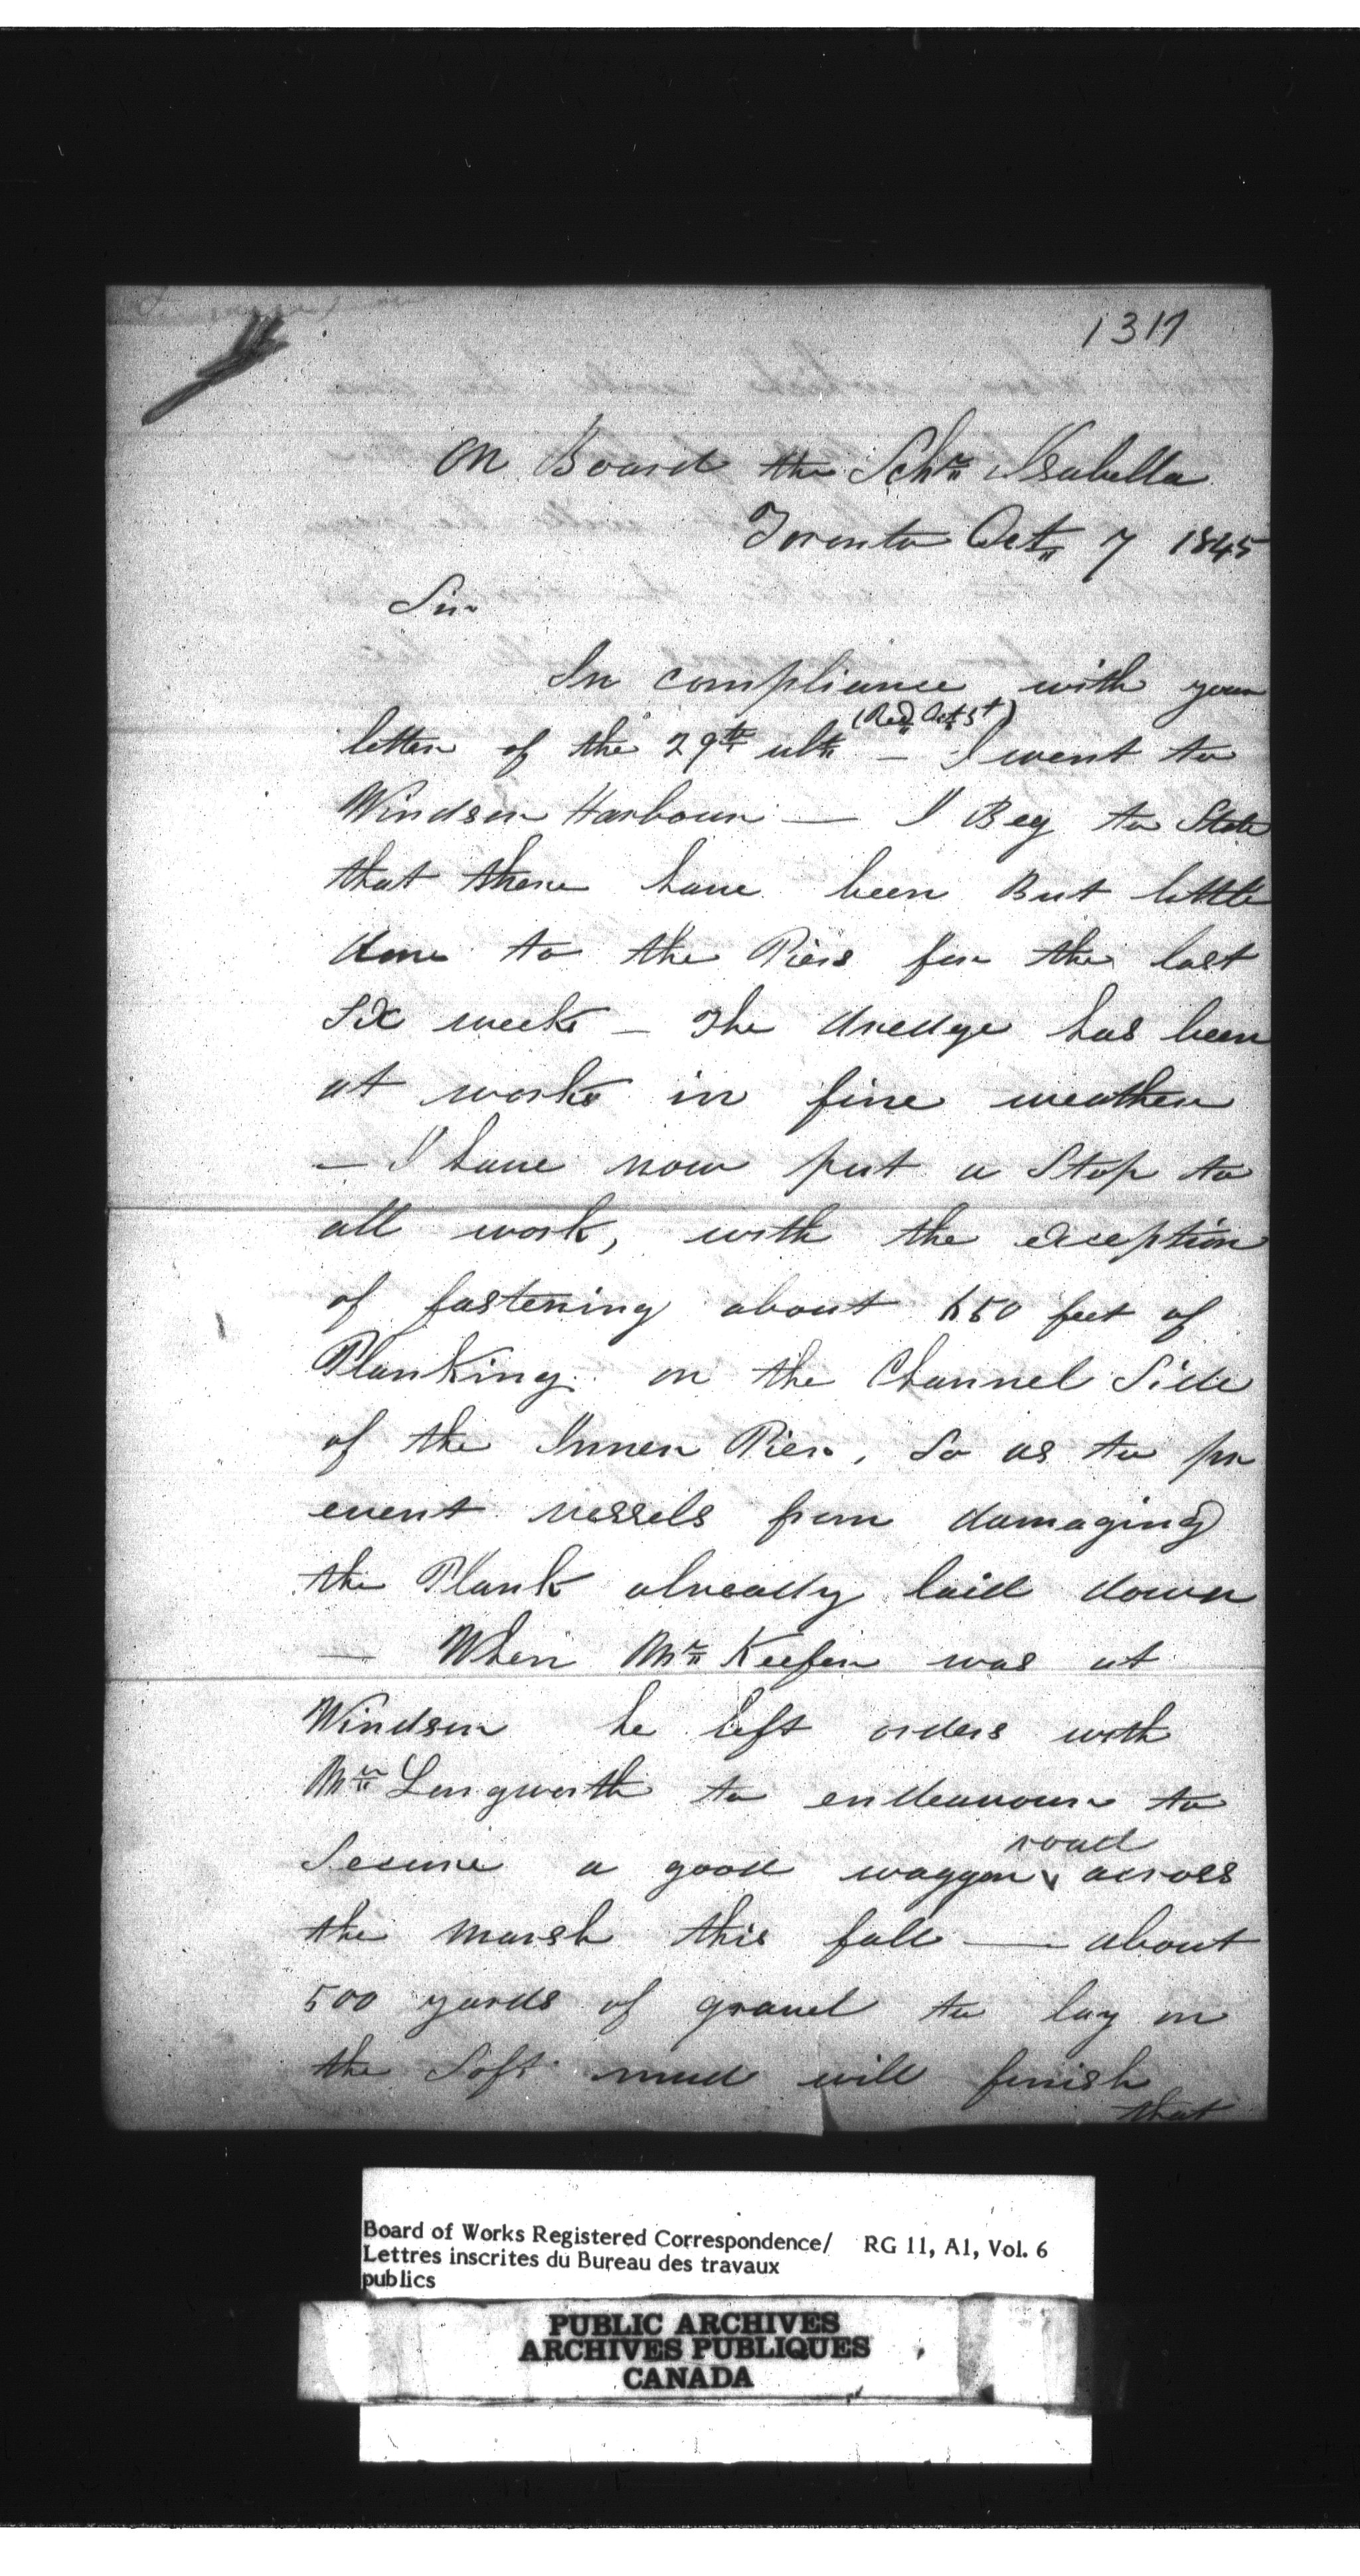 1317
On Board the Schr Isabella
Toronto Oct 7 1845
Sir
In compliance with your
letter of the 29th ult (Recd Oct 5t) — I went to
Windsor Harbour — I Beg to State
that there have been But little
done to the Piers for the last
Six weeks — The dredge has been
at work in fine weather
— I have now put a Stop to
all work, with the exception
of fastening about 650 feet of
Planking on the Channel Side
of the Inner Pier, So as to pr
event vessels from damaging
the Plank already laid down
— When Mr Keefer was at
Windsor he left orders with
Mr Longworth to endeavour to
Secure a good waggon road across
the marsh this fall — about
500 yards of gravel to lay on
the Soft mud will finish
that
Board of Works Registered Correspondence/ RG 11, A1, Vol. 6
Lettres inscrites du Bureau des travaux
publics
PUBLIC ARCHIVES
ARCHIVES PUBLIQUES
CANADA